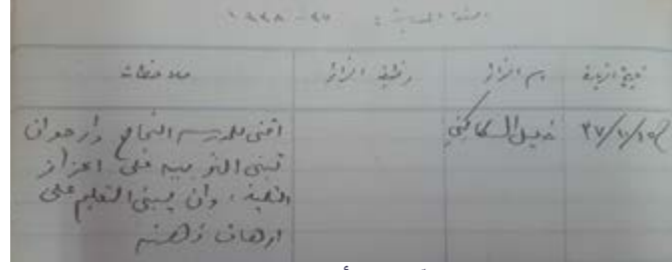 السنة المدرسية : ٣٧ - ١٩٣٨
تاريخ الزيارة اسم الزائر وظيفة الزائر ملاحظات
٣٧/١١/١٩ خليل السكاكيني اتمنى للمدرسة النجاح وأرجو ان
تبنى التربية على اعزاز
النفس ، وان يبنى التعليم على
ارهاف ذهنه